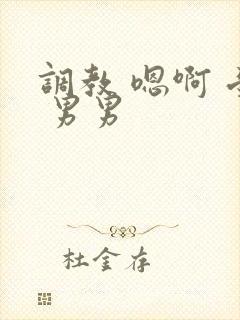 調教 嗯啊
男男
杜金存